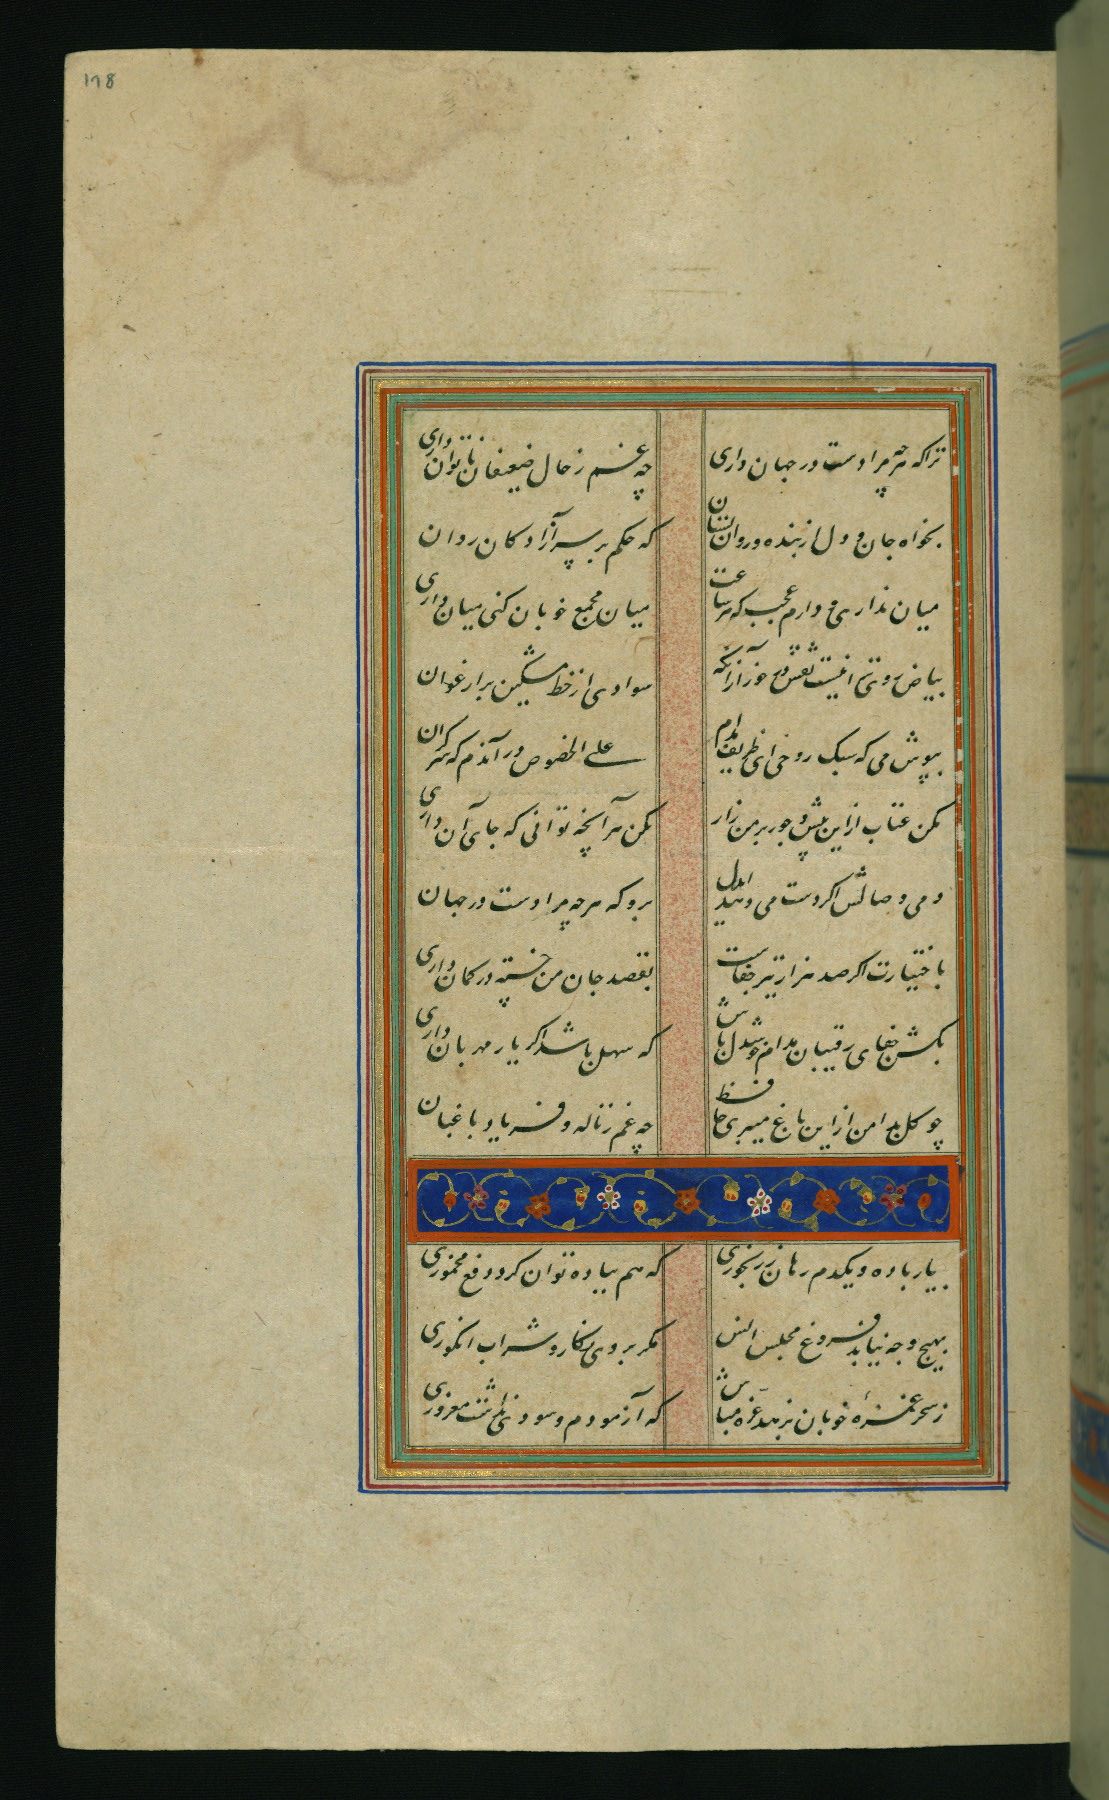 178
تراکه هرچه مرادست در جهان داری
چه غم ز حال ضعیفان ناتوان داری
بخواه جان و دل از بنده و روان بستان
که حکم بر سر آزادکان روان
میان نداری و دارم عجب که هر ساعت
میان مجمع خوبان کنی میان داری
بیاض روی ترا نیست نقش در خور از آنکه
سوادی از خط مشکین بر ارغوان
بنوش می که سبک روحی ای ظریف مدام
علی الخصوص در آندم که سر کران
مکن عتاب ازین بیش و جور بر من زار
مکن هر آنچه توانی که جای آن داری
دمی وصالش اگر دست می دهد ایدل
برو که هرچه مرادست در جهان
باختیارت اگر صد هزار تیر جفاست
بقصد جان من خسته در کمان داری
بکش جفای رقیبان مدام و خوشدل باش
که سهل باشد اگر یار مهربان داری
چو کل بدامن ازین باغ میبری حافظ
چه غم ز ناله و فریاد باغبان
بیار باده و یکدم رهان ز رنجوری
که هم بباده توان کرد دفع مخموری
بهیچ وجه نیابد فروغ مجلس انس
مگر بروی نکار و شراب انکوری
ز سحر غمزهٔ خوبان بزهد غره مباش
که آزمودم و سودی نداشت مغروری